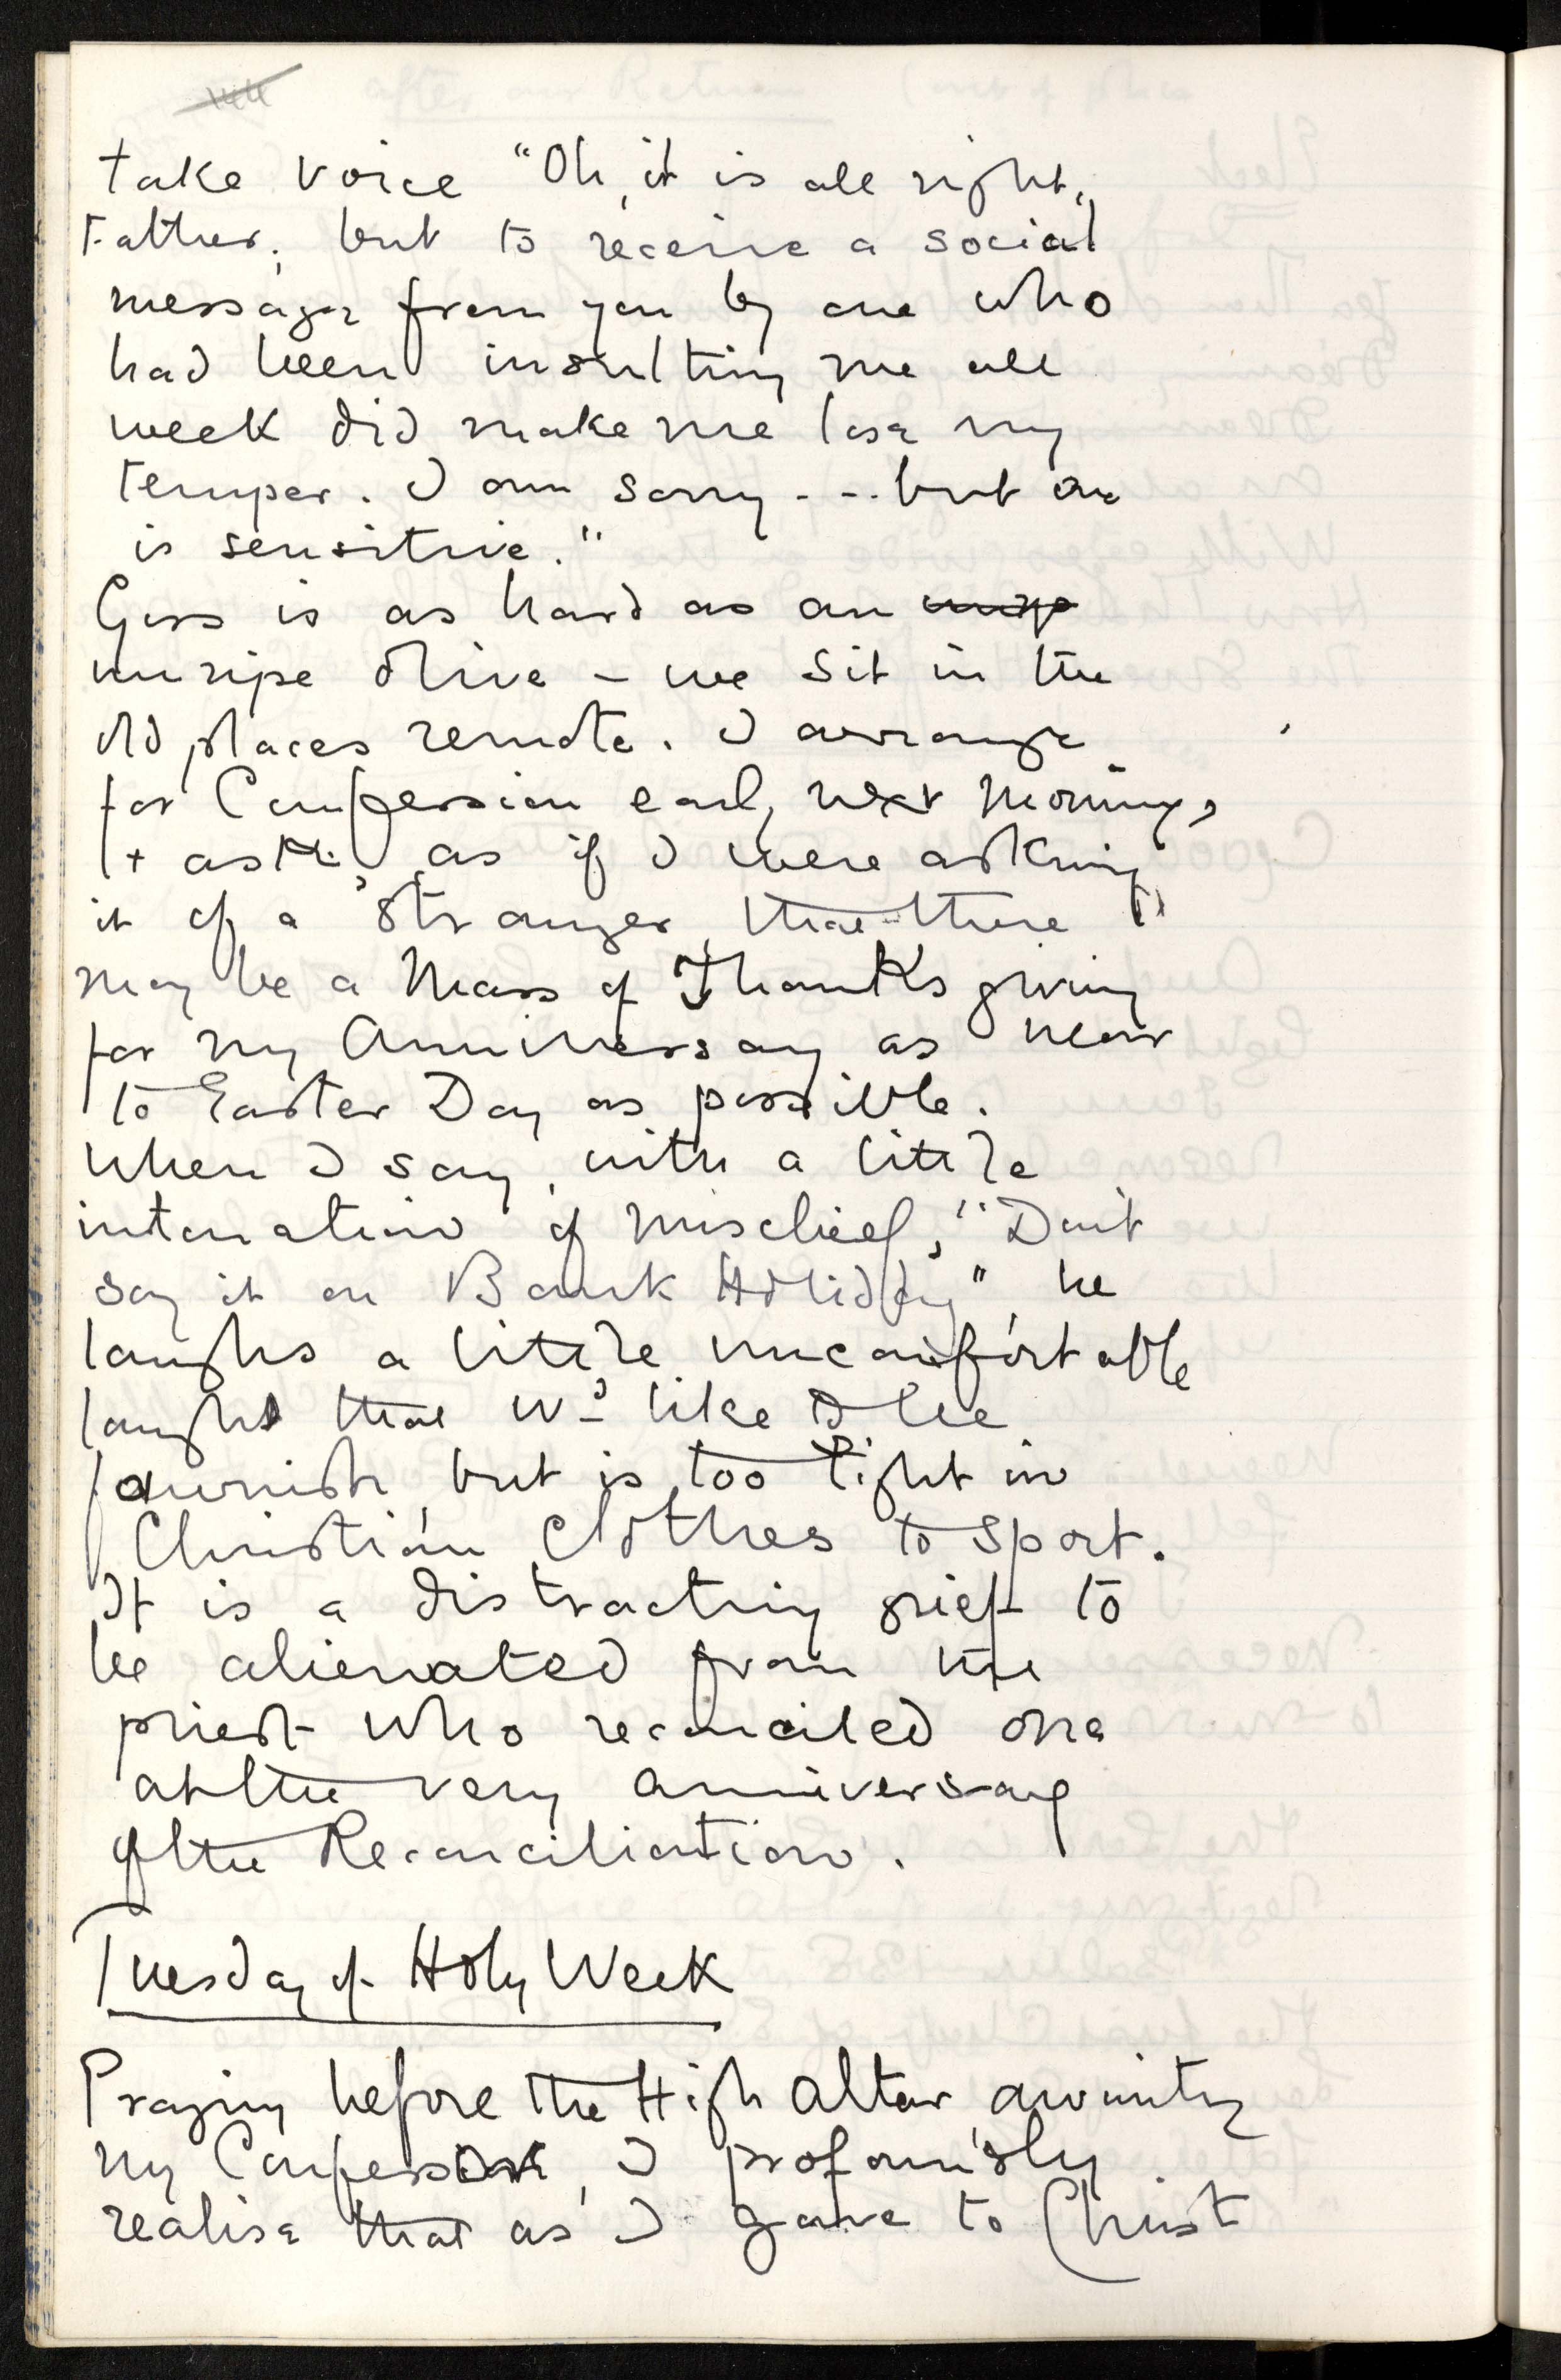 take voice "Oh, it is all right,
Father, but to receive a social
message from you by one who
had been insulting me all
week did make me lose my
temper. I am sorry - - . but one
is sensitive."
Goss is as hard as an
unripe olive – we sit in the
old places remote. I arrange
for Confession early next morning,
+ ask, as if I were asking
it of a stranger, that there
may be a Mass of Thanksgiving
for my Anniversary as near
to Easter Day as possible.
When I say, with a little
intonation of mischief, "Don't
say it on Bank Holiday" he
laughs a little uncomfortable
laugh that wd like to be
faunish, but is too tight in
Christian clothes to sport.
It is a distracting grief to
be alienated from the
priest who reconciled one
at the very anniversary
of the Reconciliation.
Tuesday of Holy Week
Praying before the High Altar awaiting
my Confessor, I profoundly
realise that as I gave to Christ